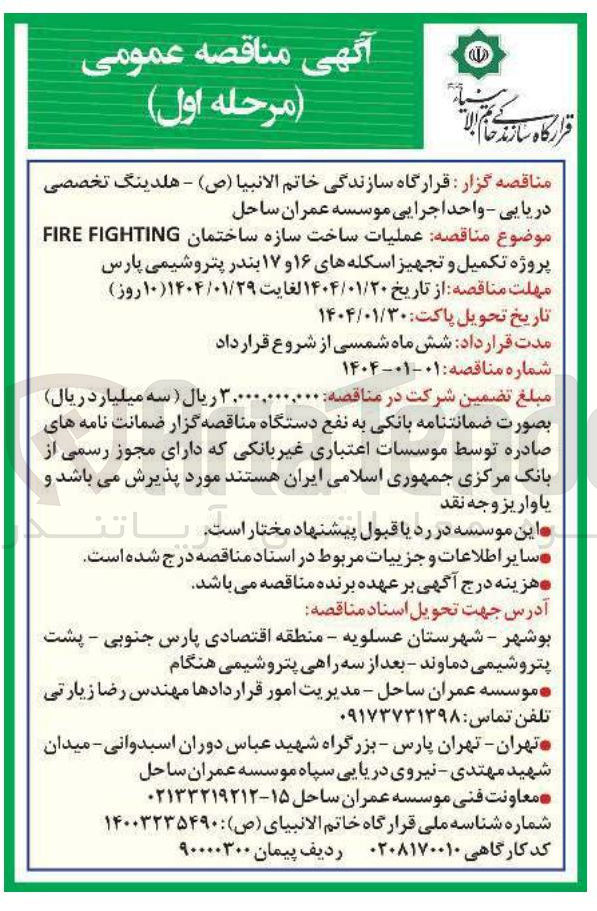 آگهی مناقصه عمومی
(مرحله اول)
قرارگاه سازندگی خاتم الانبیاء
مناقصه گزار: قرارگاه سازندگی خاتم الانبیا (ص) - هلدینگ تخصصی
دریایی - واحد اجرایی موسسه عمران ساحل
موضوع مناقصه: عملیات ساخت سازه ساختمان FIRE FIGHTING
پروژه تکمیل و تجهیز اسکله های ۱۶ و ۱۷ بندر پتروشیمی پارس
مهلت مناقصه: از تاریخ ۱۴۰۴/۰۱/۲۰ لغایت ۱۴۰۴/۰۱/۲۹ (۱۰ روز)
تاریخ تحویل پاکت: ۱۴۰۴/۰۱/۳۰
مدت قرارداد: شش ماه شمسی از شروع قرارداد
شماره مناقصه: ۰۱-۰۱-۱۴۰۴
مبلغ تضمین شرکت در مناقصه: ۳,۰۰۰,۰۰۰,۰۰۰ ریال (سه میلیارد ریال)
بصورت ضمانتنامه بانکی به نفع دستگاه مناقصه گزار ضمانت نامه های
صادره توسط موسسات اعتباری غیربانکی که دارای مجوز رسمی از
بانک مرکزی جمهوری اسلامی ایران هستند مورد پذیرش می باشد و
یا واریز وجه نقد
●این موسسه در رد یا قبول پیشنهاد مختار است.
●سایر اطلاعات و جزییات مربوط در اسناد مناقصه درج شده است.
●هزینه درج آگهی بر عهده برنده مناقصه می باشد.
آدرس جهت تحویل اسناد مناقصه:
بوشهر - شهرستان عسلویه - منطقه اقتصادی پارس جنوبی - پشت
پتروشیمی دماوند - بعد از سه راهی پتروشیمی هنگام
●موسسه عمران ساحل - مدیریت امور قراردادها مهندس رضا زیارتی
تلفن تماس: ۰۹۱۷۳۷۳۱۳۹۸
●تهران - تهران پارس - بزرگراه شهید عباس دوران اسبدوانی - میدان
شهید مهتدی - نیروی دریایی سپاه موسسه عمران ساحل
●معاونت فنی موسسه عمران ساحل ۱۵-۰۲۱۳۳۲۱۹۲۱۲
شماره شناسه ملی قرارگاه خاتم الانبیای (ص): ۱۴۰۰۳۲۳۵۴۹۰
کد کارگاهی ۰۲۰۸۱۷۰۰۱۰ ردیف پیمان ۹۰۰۰۰۳۰۰